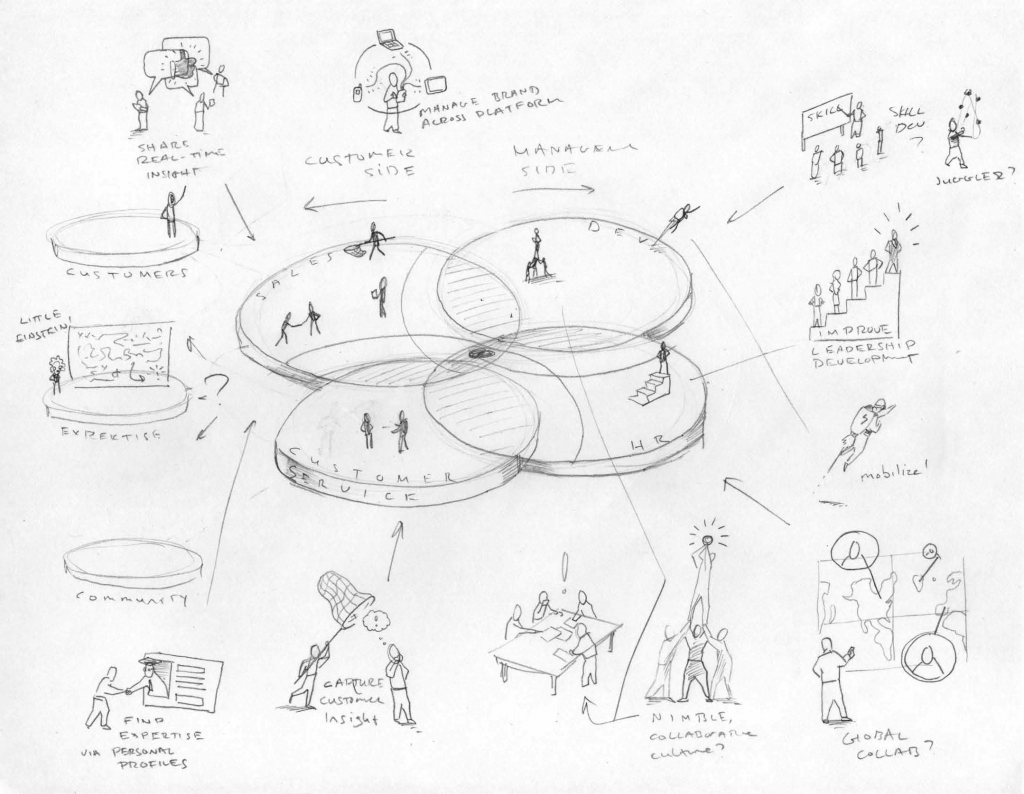 SHARE
REAL-TIME
INSIGHT
MANAGE BRAND
ACROSS PLATFORM
CUSTOMER
SIDE
SIDE
SKILL
SKILL
DEV
?
JUGGLER?
CUSTOMERS
SALES
DEV
LITTLE
EINSTEIN,
EXPERTISE
?
IMPROVE
LEADERSHIP
DEVELOPMENT
CUSTOMER
SERVICE
HR
mobilize!
COMMUNITY
!
FIND
EXPERTISE
VIA PERSONAL
PROFILES
CAPTURE
CUSTOMER
Insight
NIMBLE,
COLLABORATIVE
CULTURE?
GLOBAL
COLLAB?